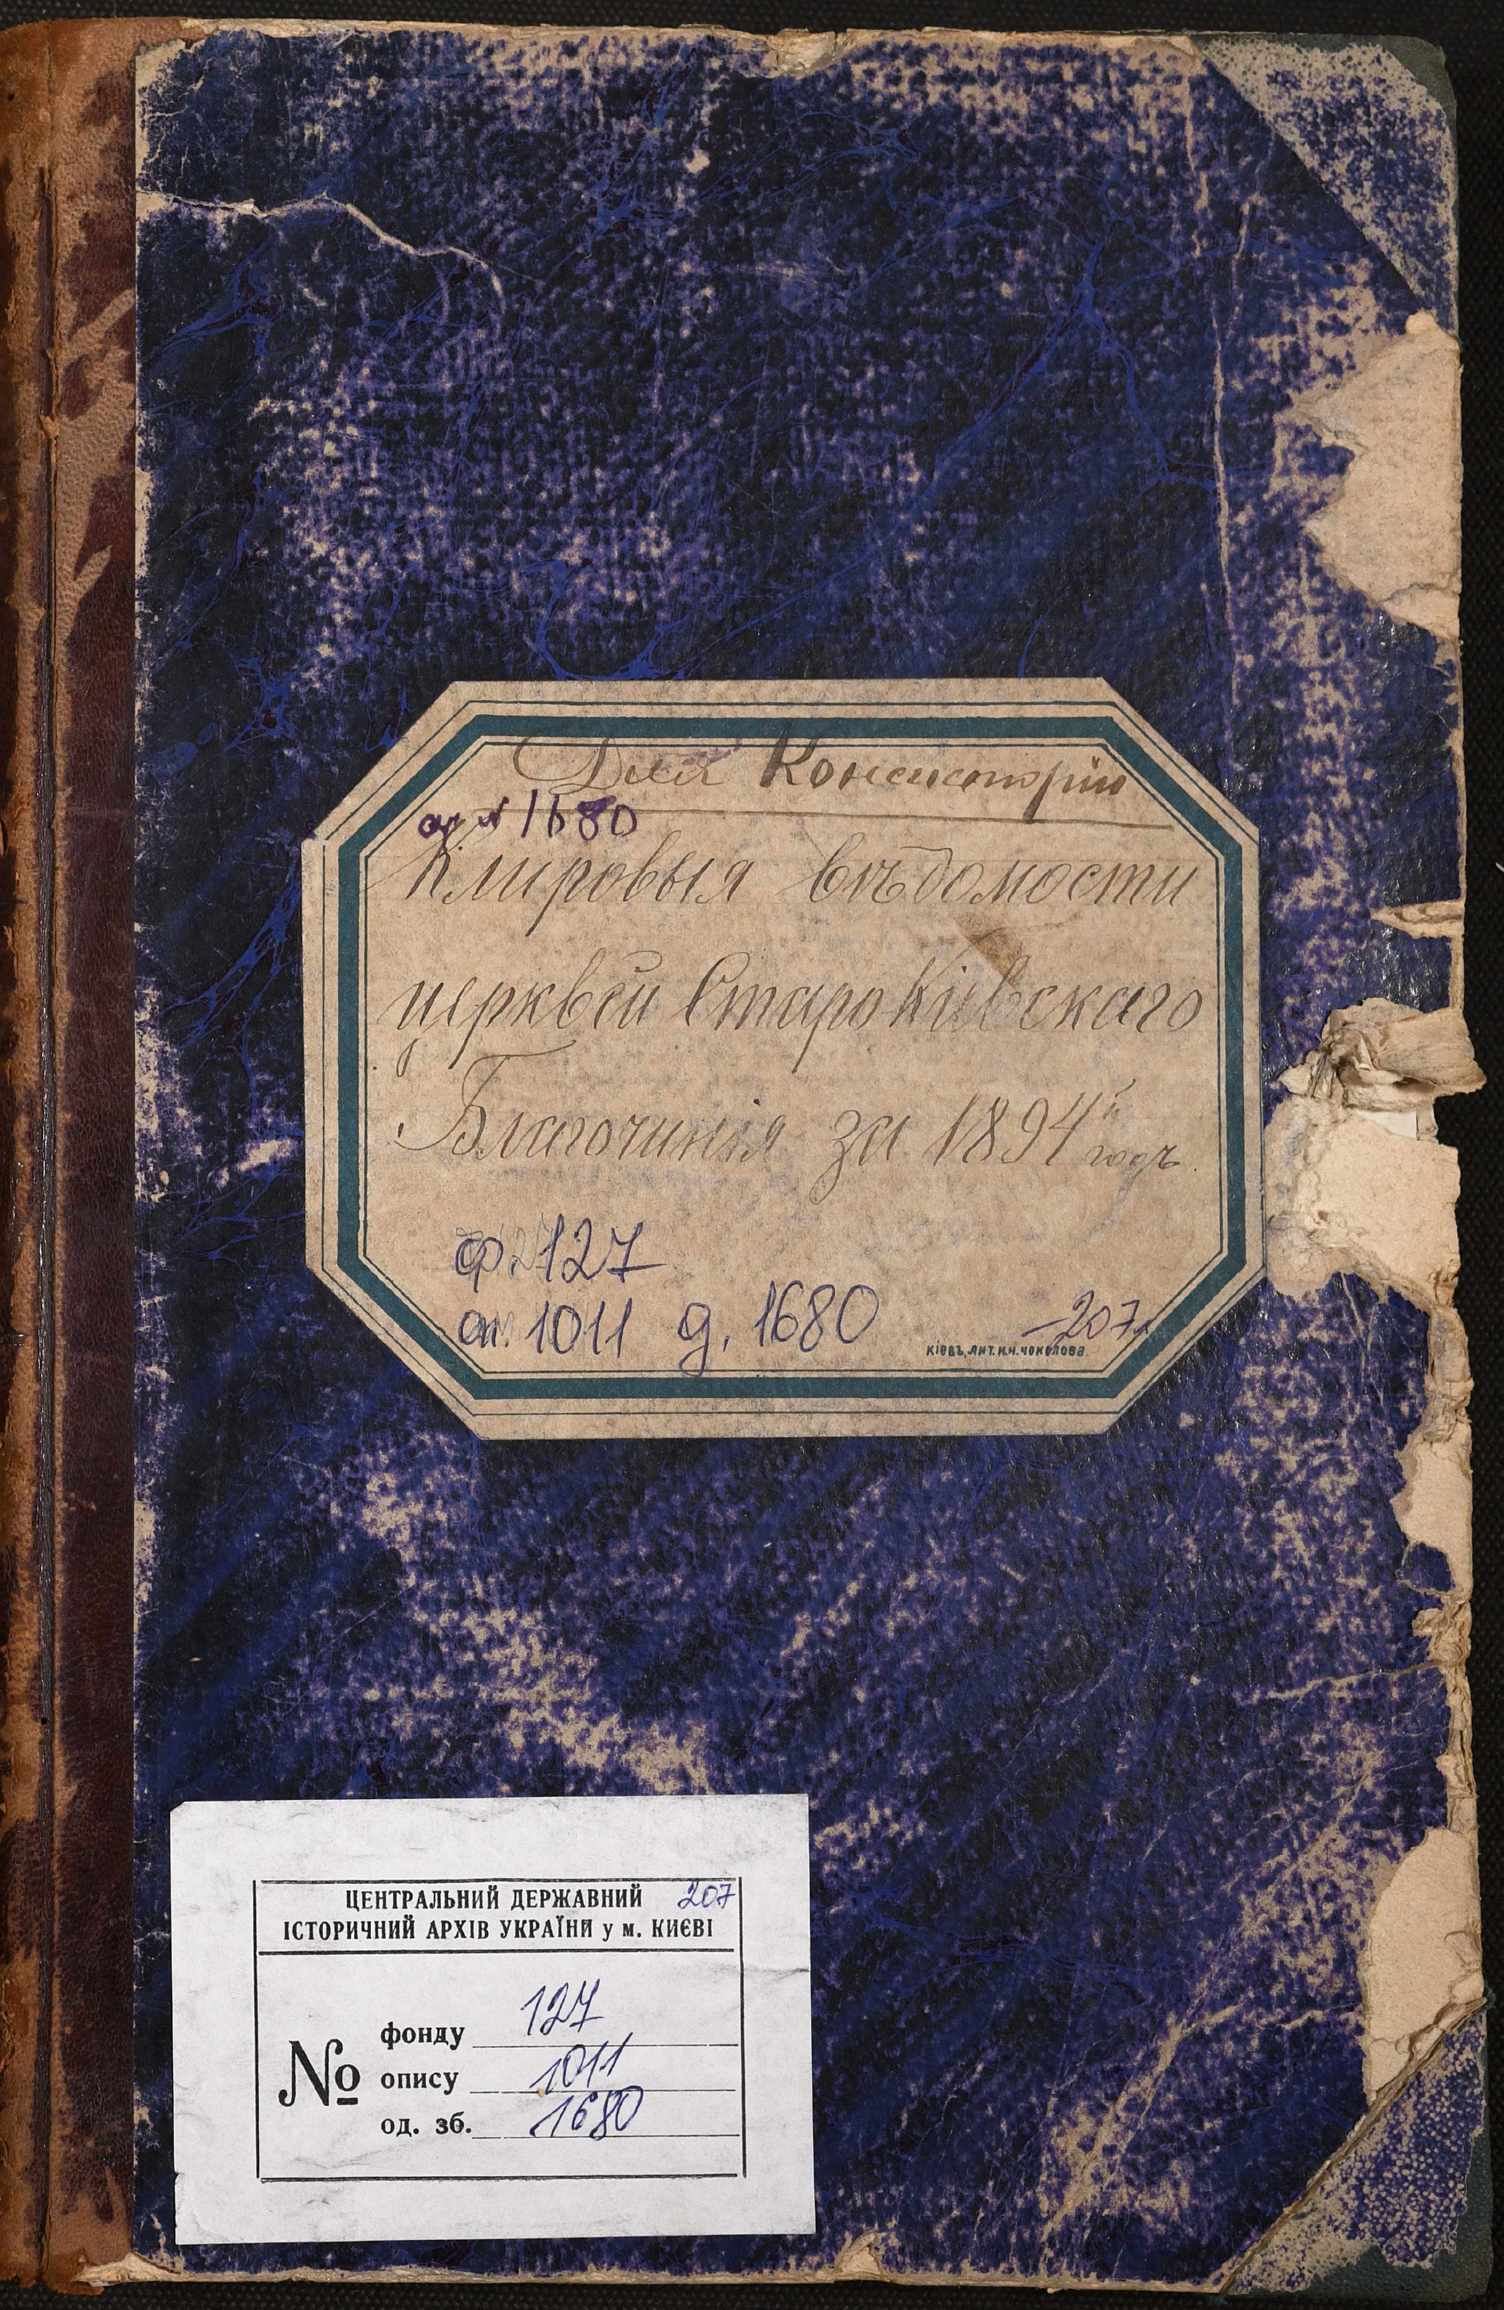 Для Консисторіи
№ 1680
Клировыя вѣдомости
церквей СтароКіевскаго
Благочинія за 1894й годъ.
ф. 127
оп. 1011 д. 1680
207л
КІЕВЪ, ЛИТ. И.И. ЧОКОЛОВА
ЦЕНТРАЛЬНИЙ ДЕРЖАВНИЙ 207
ІСТОРИЧНИЙ АРХІВ УКРАЇНИ у м. КИЄВІ
№
фонду 127
опису 1011
од. зб. 1680